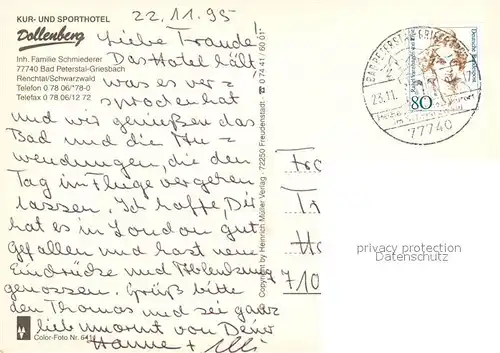 KUR- UND SPORTHOTEL
Dollenberg
Inh. Familie Schmiederer
77740 Bad Peterstal-Griesbach
Renchtal/Schwarzwald
Telefon 0 78 06/78-0
Telefax 0 78 06/12 72
22.11.95
Liebe Traudel!
Das Hotel hält
was es ver-
sprochen hat
und wir genießen das
Bad und die An-
wendungen, die den
Tag im Fluge vergehen
lassen. Ich hoffe, Dir
hat es in London gut
gefallen und hast neue
Eindrücke und Ablenkung
genossen. Grüß bitte
den Thomas und sei ganz
lieb umarmt von Deiner
Hanne + Uli
Color-Foto Nr.
Copyright by Heinrich Müller Verlag - 72250 Freudenstadt
0 74 41 / 60 01
BAD PETERSTAL-GRIESBACH
23.11.
77740
Deutsche Bundespost
80
Fr
Tr
Ha
710
privacy protection